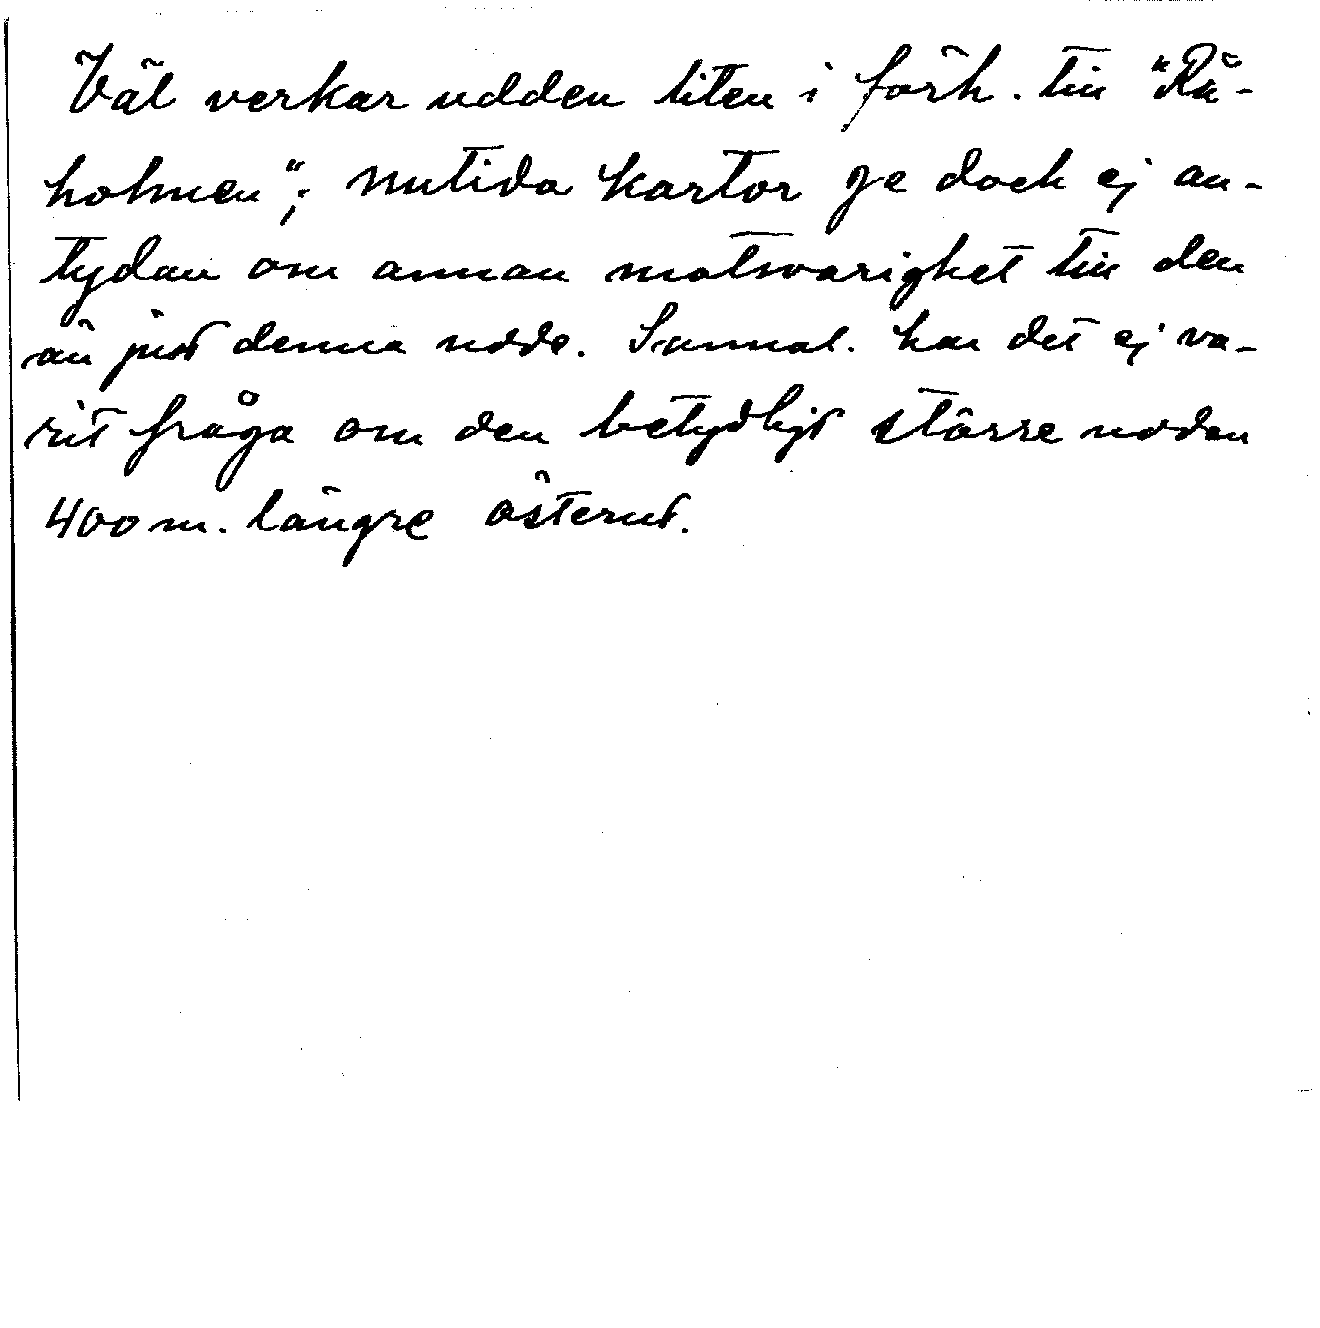 Väl verkar udden liten i förh. till "Rå-
holmen"; nutida kartor ge dock ej an-
tydan om annan motsvarighet till den
än just denna udde. Sannol. har det ej va-
rit fråga om den betydligt större udden
400 m. längre österut.